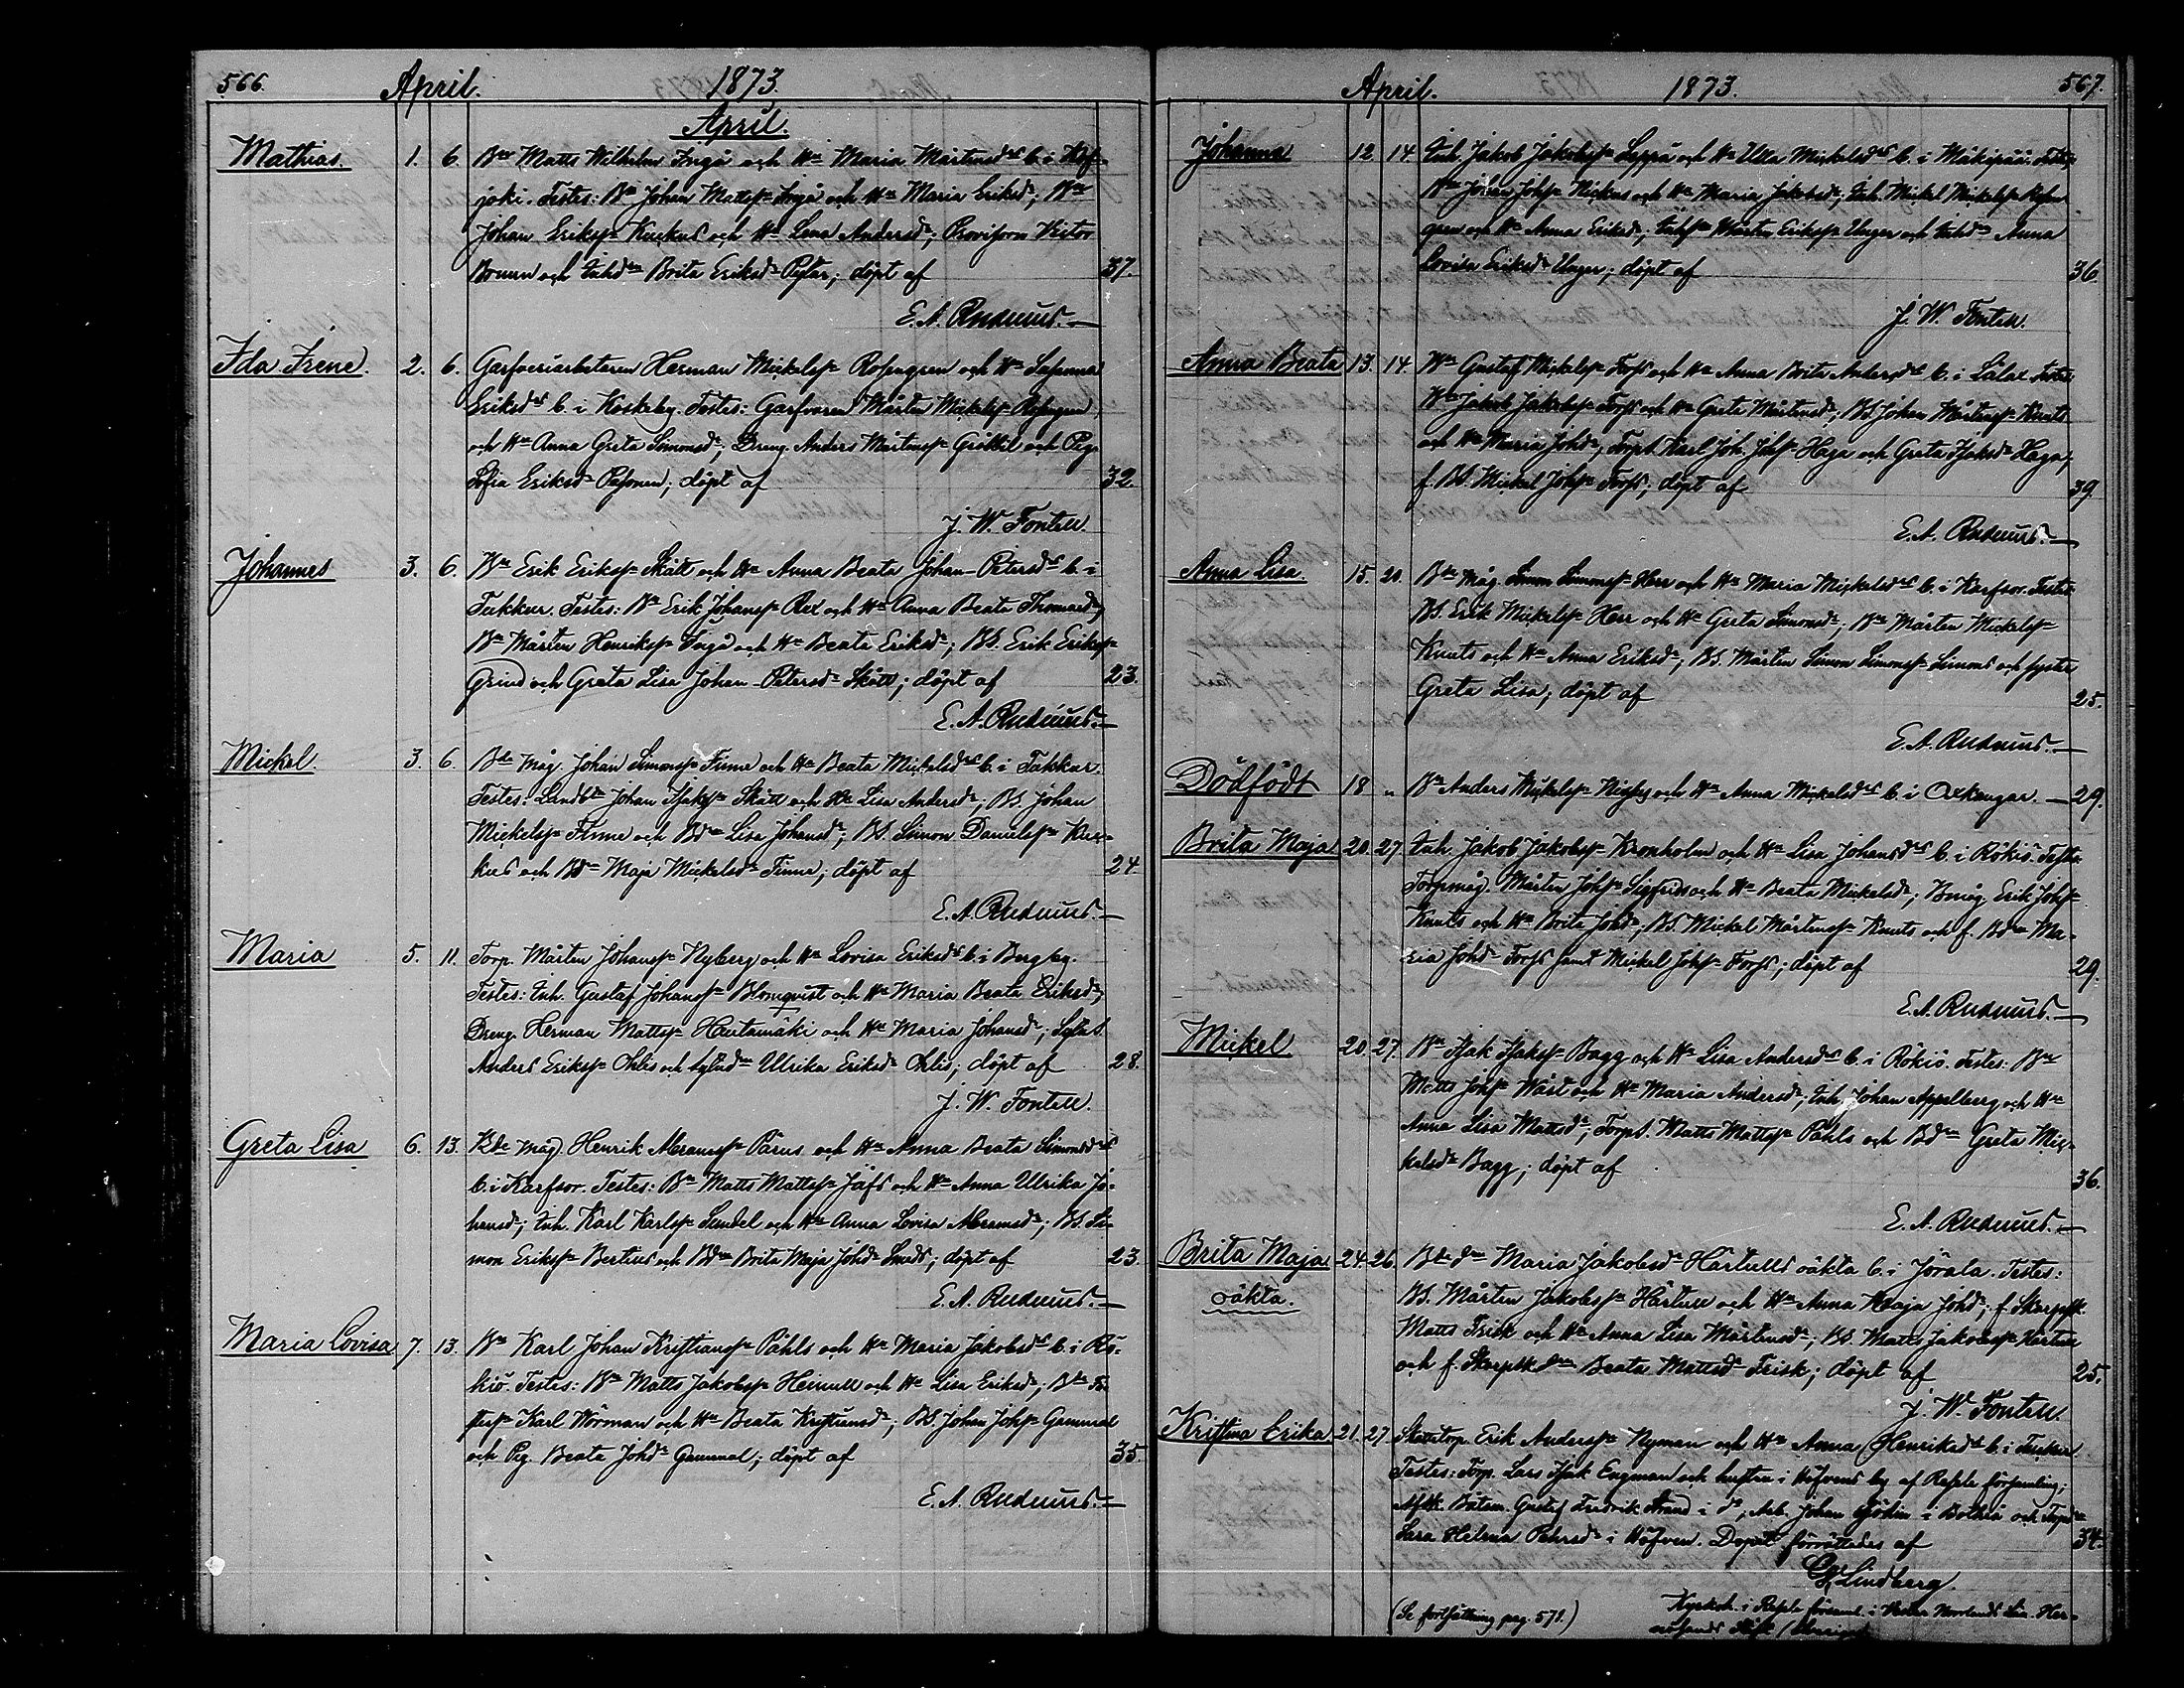 566. April. 1873.
April.
Mathias. 1. 6. Bn Matts Wilhelm Ingå och Ha Maria Mårtensdr b. i Kof-
joki. Testes: Bn Johan Mattss Ingå och Ha Maria Eriksdr; Bn
Johan Erikss Kuckus och Ha Lena Andersdr; Provisorn Victor
och Inhdn Brita Eriksdr; döpt af 37.
E. A. Rudnius.
Ida Irene. 2. 6. Garfveriarbetaren Herman Mickelss Rosengren och Ha Susanna
Eriksdr b. i Koskeby. Testes: Garfvaren Mårten Mickelss Rosengren
och Ha Anna Greta Simonsdr; Dreng. Anders Mårtenss och Pig.
Sofia Eriksdr; döpt af 32.
J. W. Fontell
Johannes 3. 6. Bn Erik Erikss Skått och Ha Anna Beata Johan-Petersdr b. i
Tukkur. Testes: Bn Erik Johanss Rex och Ha Anna Beata Thomasdr,
Bn Mårten Henrikss Ingå och Ha Beata Eriksdr; BS. Erik Erikss
Grind och Greta Lisa Johan-Petersdr Skått; döpt af 23.
E. A. Rudnius.
Mickel 3. 6. Bde måg. Johan Simonss Finne och Ha Beata Mickelsdr b. i Tukkur.
Testes: Landbn Johan Isakss Skått och Ha Lisa Andersdr; BS. Johan
Mickelss Finne och Bdn Lisa Johansdr; BS. Simon Danielss Kuc-
kus och Bdn Maja Mickelsdr Finne; döpt af 24
E. A. Rudnius.
Maria 5. 11. Torp. Mårten Johanss Nyberg och Ha Lovisa Eriksdr b. i Bergby.
Testes: Inh. Gustaf Johanss Blomqvist och Ha Maria Beata Eriksdr,
Dreng. Herman Mattss Hautamäki och Ha Maria Johansdr;
Anders Erikss Ohlis och Ulrika Eriksdr Ohlis; döpt af 28.
J. W. Fontell.
Greta Lisa 6. 13. Bde måg. Henrik Abramss Pärus och Ha Anna Beata Simonsdr
b. i Karfsor. Testes: Bn Matts Mattss Jäfs och Ha Anna Ulrika Jo-
hansdr; Inh. Karl Karlss Sundel och Ha Anna Lovisa Abramsdr; BS. Si-
mon Erikss Bertius och Bdn Brita Maja Johdr Smeds; döpt af 23.
E. A. Rudnius.
Maria Lovisa 7. 13. Bn Karl Johan Kristianss Påhls och Ha Maria Jakobsdr b. i Rö-
kiö. Testes: Bn Matts Jakobss Heinull och Ha Lisa Eriksdr; Bde Fo-
sterss Karl Wörman och Ha Beata Kristiansdr; BS. Johan Johss Gammal
och Pig. Beata Johdr Gammal; döpt af 35.
E. A. Rudnius.
April. 1873. 567.
Johanna 12 14 Inh. Jakob Jakobss Leppä och Ha Ulla Mickelsdr b. i Mäkipää. Testes
Bn Johan Johss Kuckus och Ha Maria Jakobsdr; Inh. Mickel Mickelss Rosen-
gren och Ha Anna Eriksdr; Inhss Mårten Erikss Unger och Inhdr Anna
Lovisa Eriksdr Unger; döpt af 36.
J. W. Fontell.
Anna Beata 13. 14. Bn Gustaf Mickelss Forss och Ha Anna Brita Andersdr b. i Lålax Testes
Bn Jakob Jakobss Forss och Ha Greta Mårtensdr; BS. Johan Mårtenss Knuts
och Ha Maria Johdr; TorpS. Karl Joh. Johss Haga och Greta Isaksdr Haga,
f. BS. Mickel Johss Forss; döpt af 39.
E. A. Rudnius.
Anna Lisa. 15. 20. Bde måg. Simon Simonss Herr och Ha Maria Mickelsdr b. i Karfsor. Testes:
BS. Erik Mickelss Herr och Ha Greta Simonsdr; Bn Mårten Mickelss
Knuts och Ha Anna Eriksdr; BS. Mårten Simon Simonss Simons och syster
Greta Lisa; döpt af 25.
E. A. Rudnius.
Dödfödt 18 „ Bn Anders Mickelss och Ha Anna Mickelsdr b. i Oxkangar. 29.
Brita Maja 20. 27 Inh. Jakob Jakobss Kronholm och Ha Lisa Johansdr b. i Rökiö. Testes
Torpmåg. Mårten Johss Sigfrids och Ha Beata Mickelsdr; Bmåg. Erik Johss
Knuts och Ha Brita Johdr; BS. Mickel Mårtenss Knuts och f. Bdn Ma-
ria Johdr Forss samt Mickel Johss Forss; döpt af 29.
E. A. Rudnius.
Mickel 20. 27. Bn Isak Isakss Bagg och Ha Lisa Andersdr b. i Rökiö. Testes: Bn
Matts Johss Wåst och Ha Maria Andersdr; Inh. Johan Appelberg och Ha
Anna Lisa Mattsdr; TorpS. Matts Mattss Påhls och Bdn Greta Mic-
kelsdr Bagg; döpt af 36.
E. A. Rudnius.
Brita Maja 24. 26. Bde dn Maria Jakobsdr Hartulls oäkta b. i Jörala. Testes:
oäkta. BS. Mårten Jakobss Hartull och Ha Anna Kaja Johdr; f. Skarpsk.
Matts Frisk och Ha Anna Lisa Mårtensdr; BS. Matts Jakobss Hartull
och f. Skarpsk.dn Beata Mattsdr Frisk; döpt af 25.
J. W. Fontell.
Kristina Erika 21. 27. Skattetorp. Erik Anderss Nyman och Ha Anna Henriksdr b. i Tuckur.
Testes: Torp. Lars Isak Engman och hustru i Höfvens by af Resele församling;
Afsk. Båtsm. Gustaf Fredrik Strand i do, Arb. Johan Sjödin i Bölheå och Torpdn
Sara Helena Pehrsdr i Höfven. Dopet förrättades af 34.
Lindberg.
(Se fortsättning pag. 571.) Kyrkoh. i Resele församl. i Wester Norrlands Län. Her-
nösands Stift